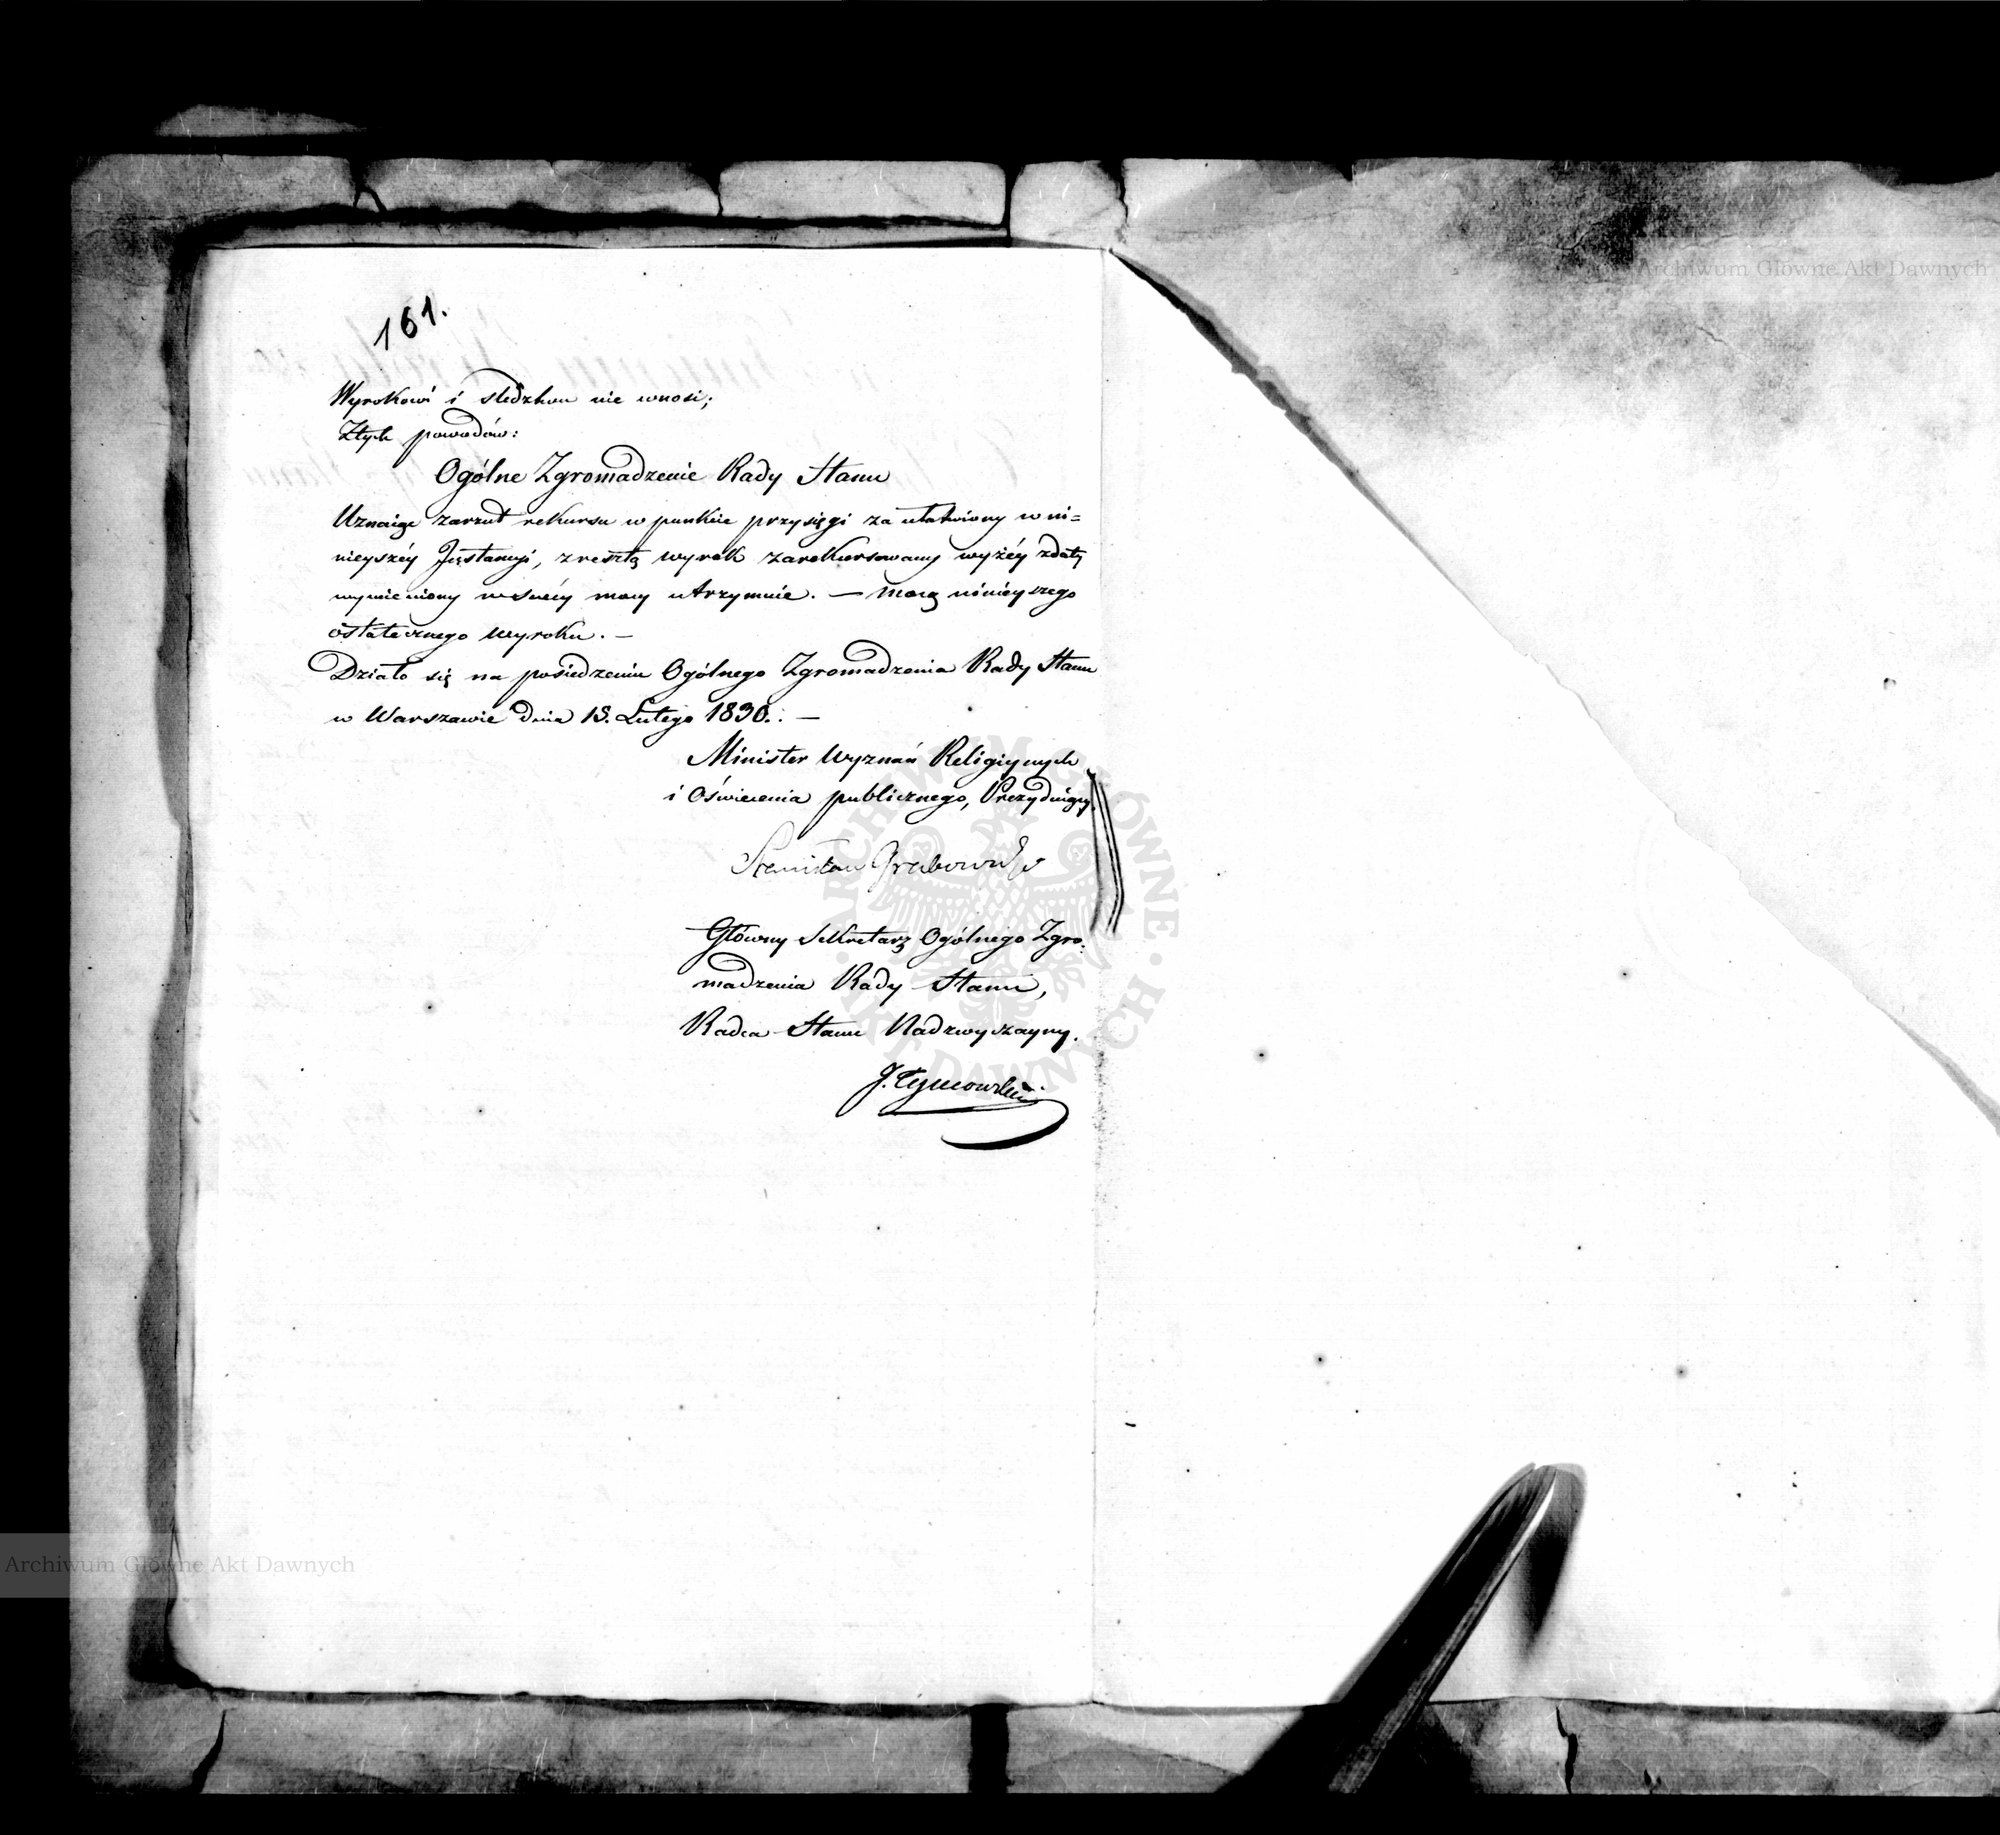 161.
Wyrokowi i śledztwu nie wnosi;
Z tych powodów:
Ogólne Zgromadzenie Rady Stanu
Uznaiąc zarzut rekursu w punkcie przysięgi za ułatwiony w ni=
nieyszéy Instancyi, zresztą wyrok zarekursowany wyżéy z daty
wymieniony w swéy mocy utrzymuie. — mocą ninieyszego
ostatecznego wyroku. —
Działo się na posiedzeniu Ogólnego Zgromadzenia Rady Stanu
w Warszawie dnia 18. Lutego 1830. —
Minister Wyznań Religiynych
i Oświecenia publicznego, Prezyduiący.
Stanisław Grabowski
Główny Sekretarz Ogólnego Zgro=
madzenia Rady Stanu,
Radca Stanu Nadzwyczayny.
J. Tymowski
Archiwum Główne Akt Dawnych
Archiwum Główne Akt Dawnych
ARCHIWUM GŁÓWNE · AKT DAWNYCH ·